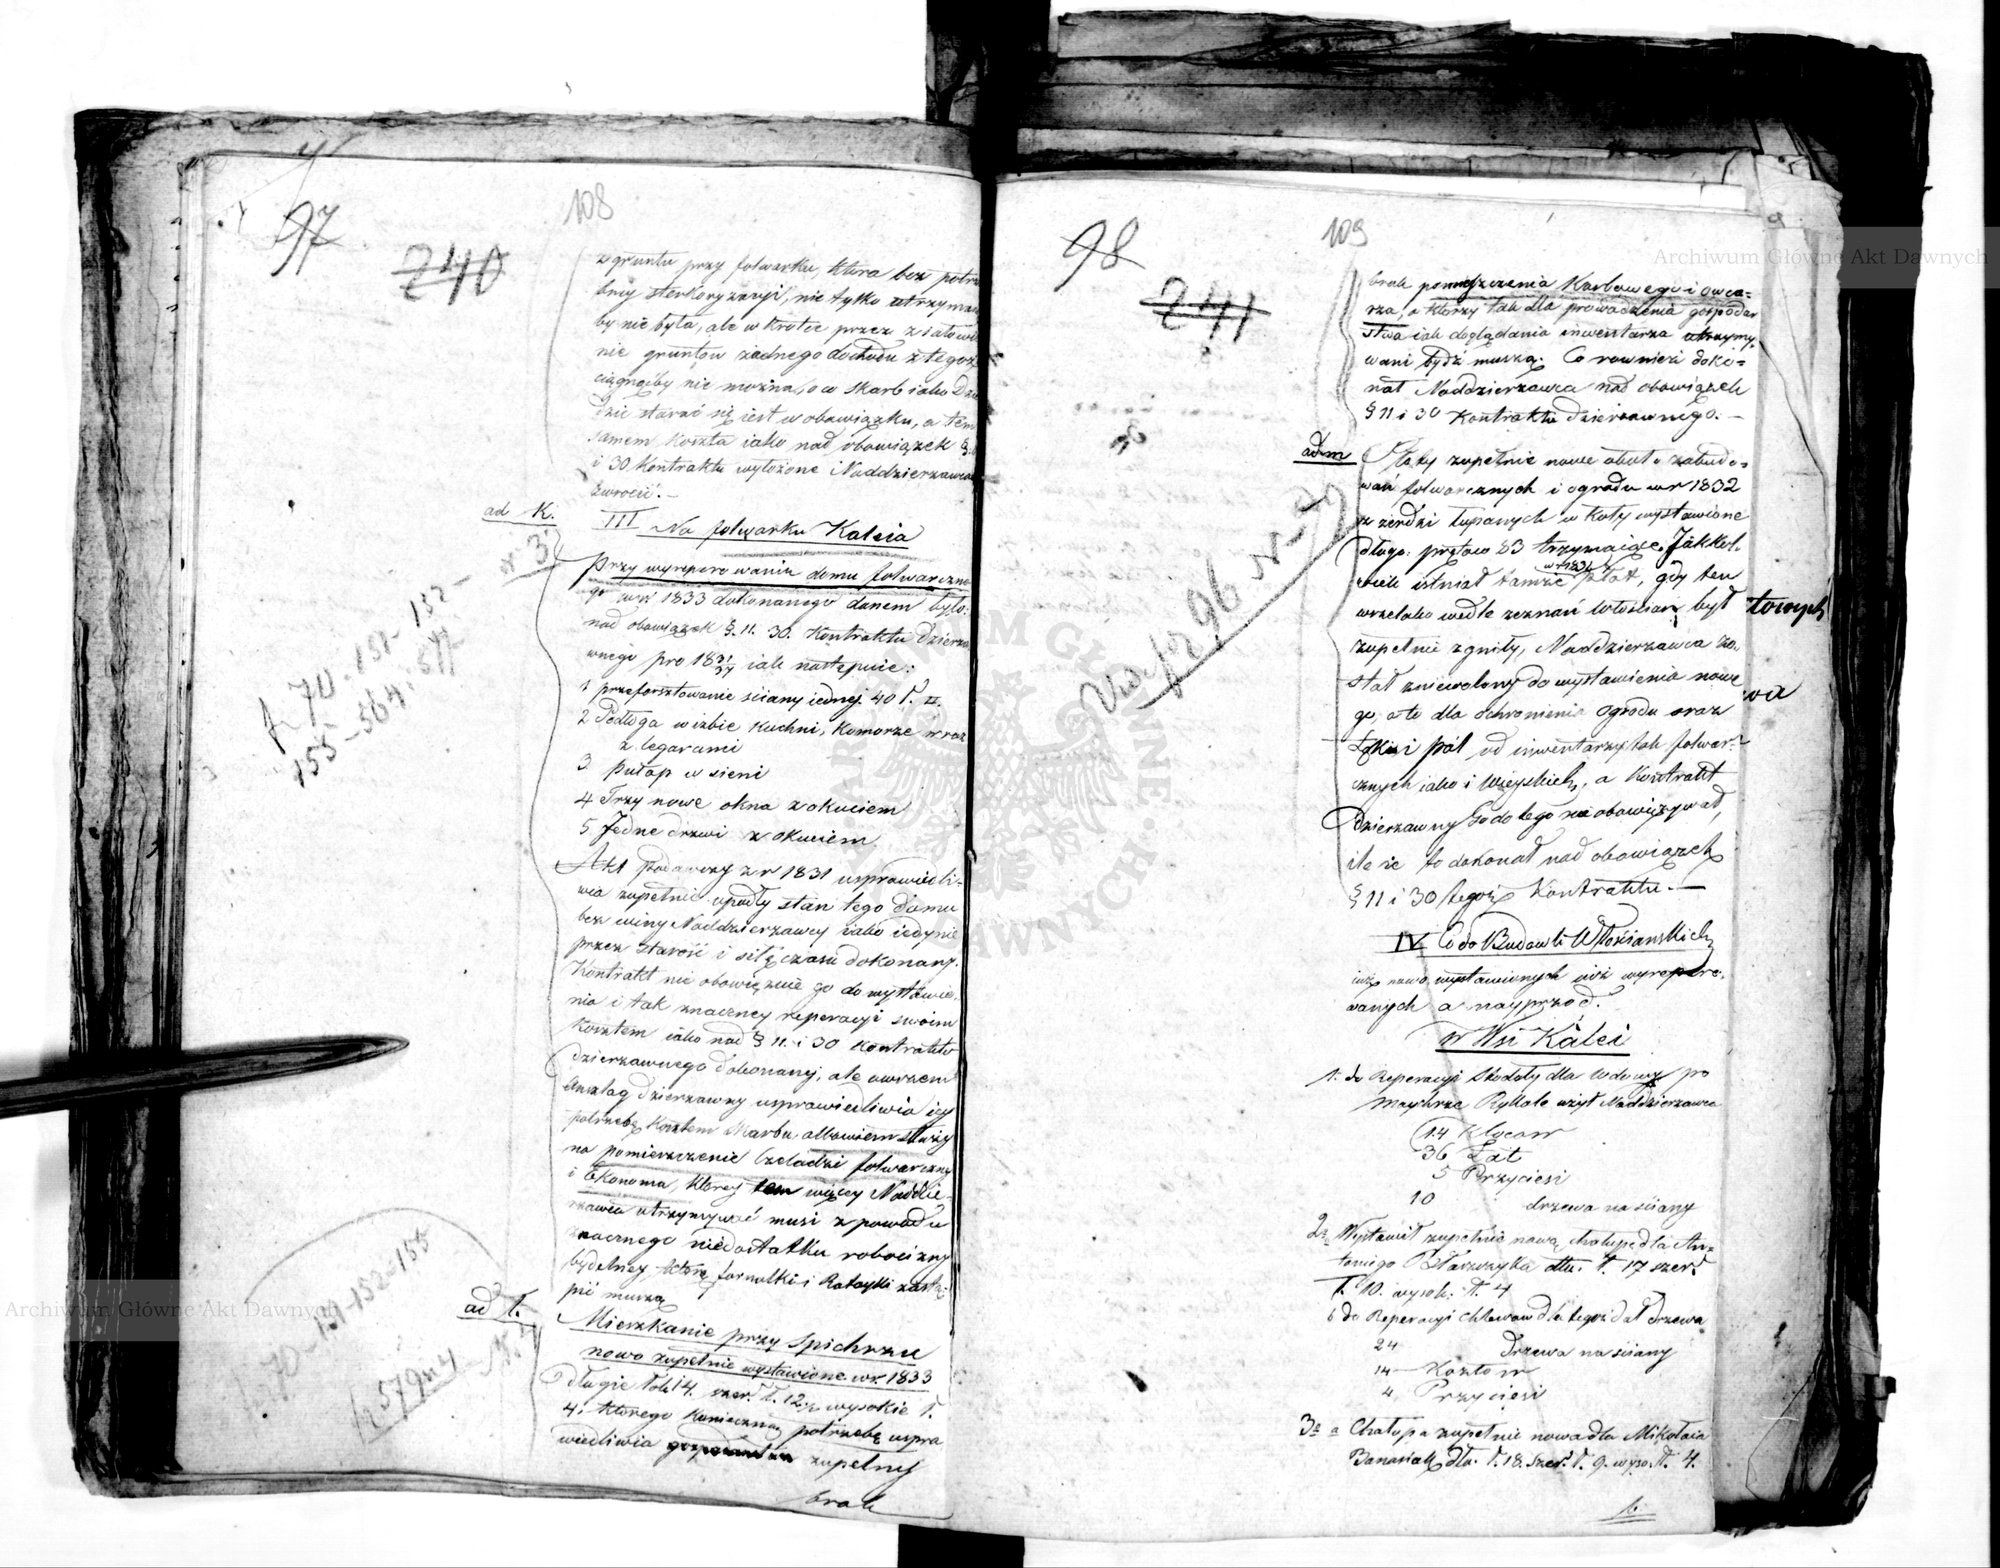 97
240
108
z gruntu przy folwarku, która bez potrze
bnej sterkoryzacyi, nie tylko utrzyman
by nie była, ale w krótce przez zjałowie
nie gruntów żadnego dochodu z tegoż
ciągnąćby nie można, o co Skarb iako Dzie
dzic starać się iest w obowiązku, a tem
samem koszta iako nad obowiązek §. 11
i 30 Kontraktu wyłożone Naddzierzawcy
zwrócić. —
ad K.
III Na folwarku Kaleia
№ 3
Przy wyreperowaniu domu folwarczne
go w r 1833 dokonanego danem było
nad obowiązek §. 11. 30. Kontraktu dzierża
wnego pro 18 31/37 iak następuie:
1 przeforsztowanie sciany iednej 40 ł. □.
2 Podłoga w izbie kuchni, komorze wraz
z legarami
3. pułap w sieni
4 Trzy nowe okna z okuciem
5. Jedne drzwi z okuciem
Akt podawczy z r 1831 usprawiedli-
wia zupełnie upadły stan tego domu
bez winy Naddzierzawcy iako iedynie
przez starość i siłę czasu dokonany.
Kontrakt nie obowiązuie go do wystawie-
nia i tak znaczney reperacyi swoim
kosztem iako nad § 11. i 30 Kontraktu
dzierzawnego dokonanej, ale owszem
Anszlag dzierzawny usprawiedliwia iey
potrzebę kosztem Skarbu, albowiem służy
na pomieszczenie czeladzi folwarczny
i Ekonoma, którey tem więcey Naddzie-
rzawca utrzymywać musi z powodu
znacznego niedostatku robocizny
bydelney którą fornalki i Ratayki zastą-
pić muszą
ad ł.
№ 4
Mieszkanie przy Spichrzu
nowo zupełnie wystawione w r. 1833
długie łok 14. szer. ł. 12 1/2 wysokie ł.
4. którego konieczną potrzebę uspra
wiedliwia zupełny
brak
f. 70. 151-152-
155-564.577.
f. 70-151-152-155
p 579 n 4
98
241
109
brak pomieszczenia Karbowego i owcza-
rza, a którzy tak dla prowadzenia gospodar
stwa iak doglądania inwentarza utrzymy
wani bydź muszą. Co również doko-
nał Naddzierzawca nad obowiązek
§ 11 i 30 Kontraktu dzierzawnego. —
ad m
Płoty zupełnie nowe około zabudo-
wań folwarcznych i ogrodu w r 1832
z żerdzi łupanych w koły wystawione
długo: prętów 83 trzymaiące. Jakkol-
wiek istniał tamże w r 1831 Płot, gdy ten
wszelako wedle zeznań włościan był
zupełnie zgniły, Naddzierzawca zo-
stał zniewolony do wystawienia nowe
go, a to dla ochronienia ogrodu oraz
Łąki i pól od inwentarzy tak folwar-
cznych iako i wieyskich, a Kontrakt
dzierzawny Go do tego nie obowiązywał,
ile że to dokonał nad obowiązek
§ 11 i 30 tegoż Kontraktu. —
IV Co do Budowli Włościanskich
iuż nowo wystawionych iuż wyrepero-
wanych a nayprzód.
w Wsi Kalei
1. do Reperacyi Stodoły dla wdowy po
Maychrze Rykale użył Naddzierzawca
14 Klocow
36 Łat
5 Przyciesi
10 drzewa na sciany
2. a Wystawił zupełnie nową chałupę dla An-
toniego dłu. ł. 17 szer.
ł. 10. wysok: ł. 4
b do Reperacyi chlewow dla tegoż dał drzewa
24 drzewa na sciany
14 Kozłow
4 Przyciesi
3. a Chałupa zupełnie nowa dla Mikołaia
Banasiak dłu. ł. 18. szer. ł. 9. wyso. ł. 4.
b.
Archiwum Główne Akt Dawnych
Archiwum Główne Akt Dawnych
ARCHIWUM GŁÓWNE AKT DAWNYCH